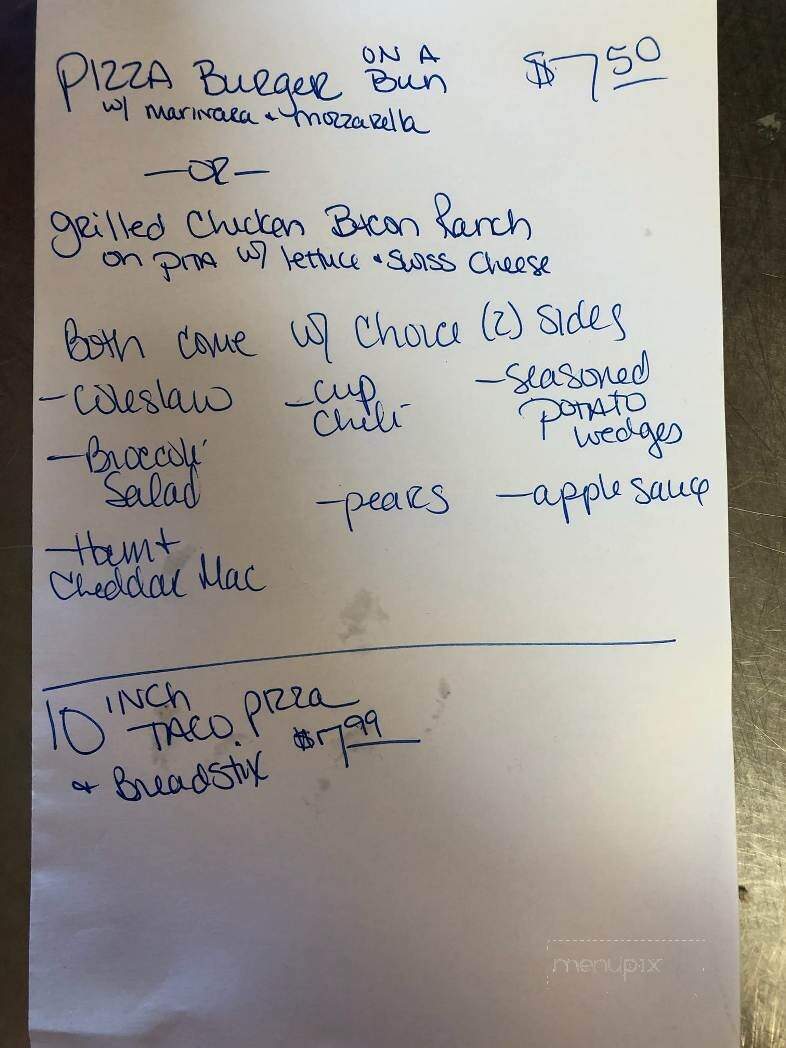 PIZZA Burger ON A Bun $7.50
w/ marinara + mozzarella
—OR—
grilled Chicken Bacon Ranch
on PITA w/ lettuce + Swiss Cheese
Both come w/ choice (2) sides
- Coleslaw
- Broccoli
Salad
- Ham +
Cheddar Mac
- cup
Chili
- pears
- Seasoned
POTATO
wedges
- apple sauce
10 INCH
TACO pizza
+ Breadstix $7.99
menupix